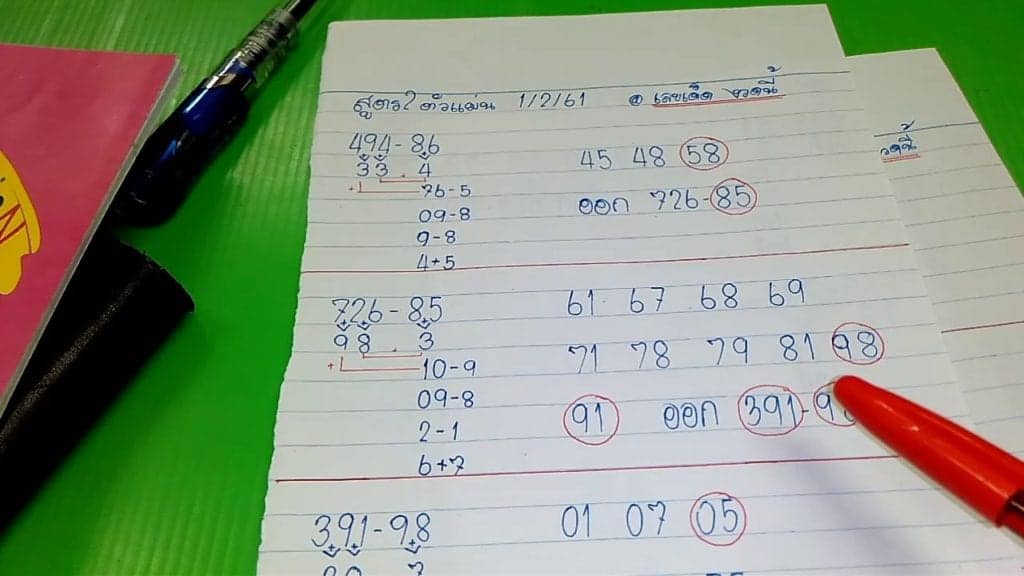 สูตร 2 ตัวแม่น 1/2/61 @ เลขเด็ด งวดนี้
494-86
3 3 . 4
76-5
09-8
9-8
4+5
45 48 58
ออก 726-85
726-85
9 8 . 3
+
10-9
09-8
2-1
6+7
61 67 68 69
71 78 79 81 98
91 ออก 391-9
391-98
01 07 05
งวดนี้